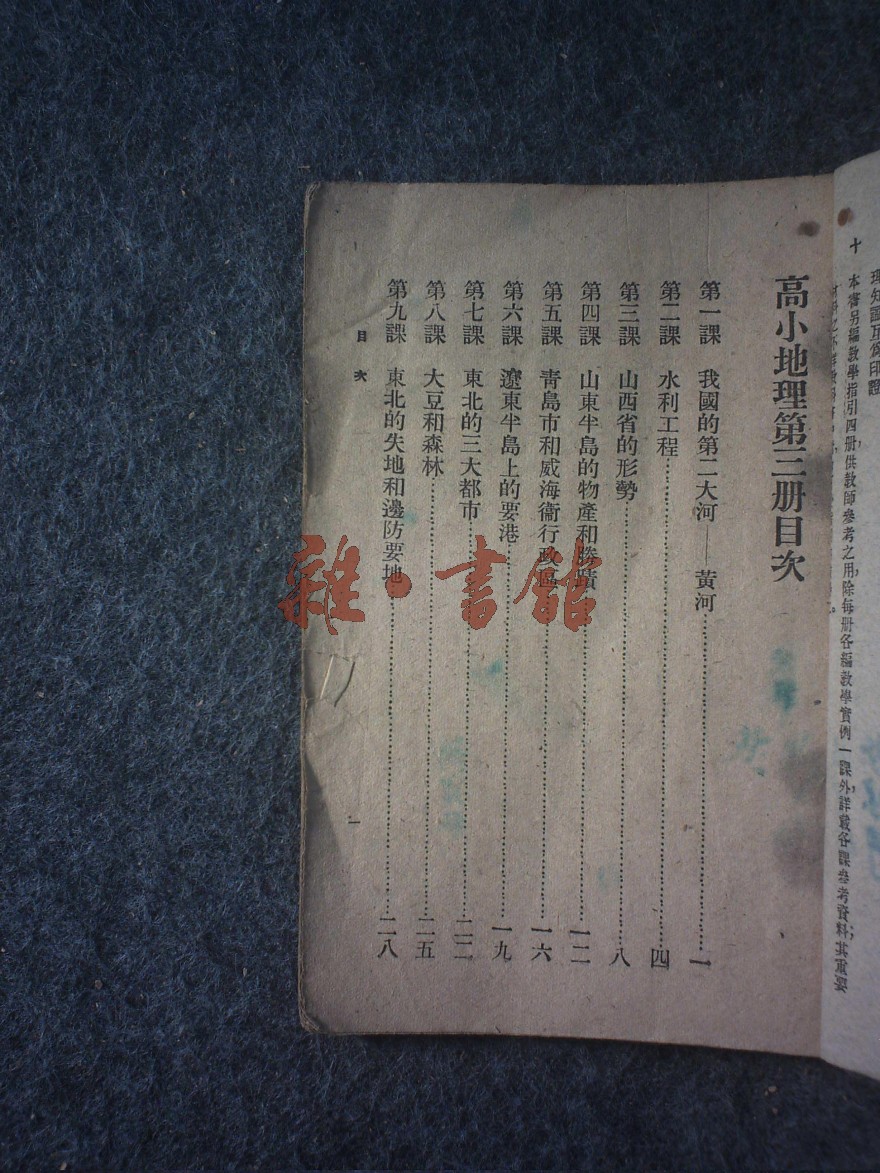 理知識互爲印證
十　本書另編教學指引四册，供教師參考之用，除每册各編教學實例一課外，詳載各課參考資料；其重要
高小地理第三册目次
第一課　我國的第二大河——黃河……一
第二課　水利工程……四
第三課　山西省的形勢……八
第四課　山東半島的物產和勝蹟……一二
第五課　青島市和威海衞行政區……一六
第六課　遼東半島上的要港……一九
第七課　東北的三大都市……二二
第八課　大豆和森林……二五
第九課　東北的失地和邊防要地……二八
目次
一
雜·書館